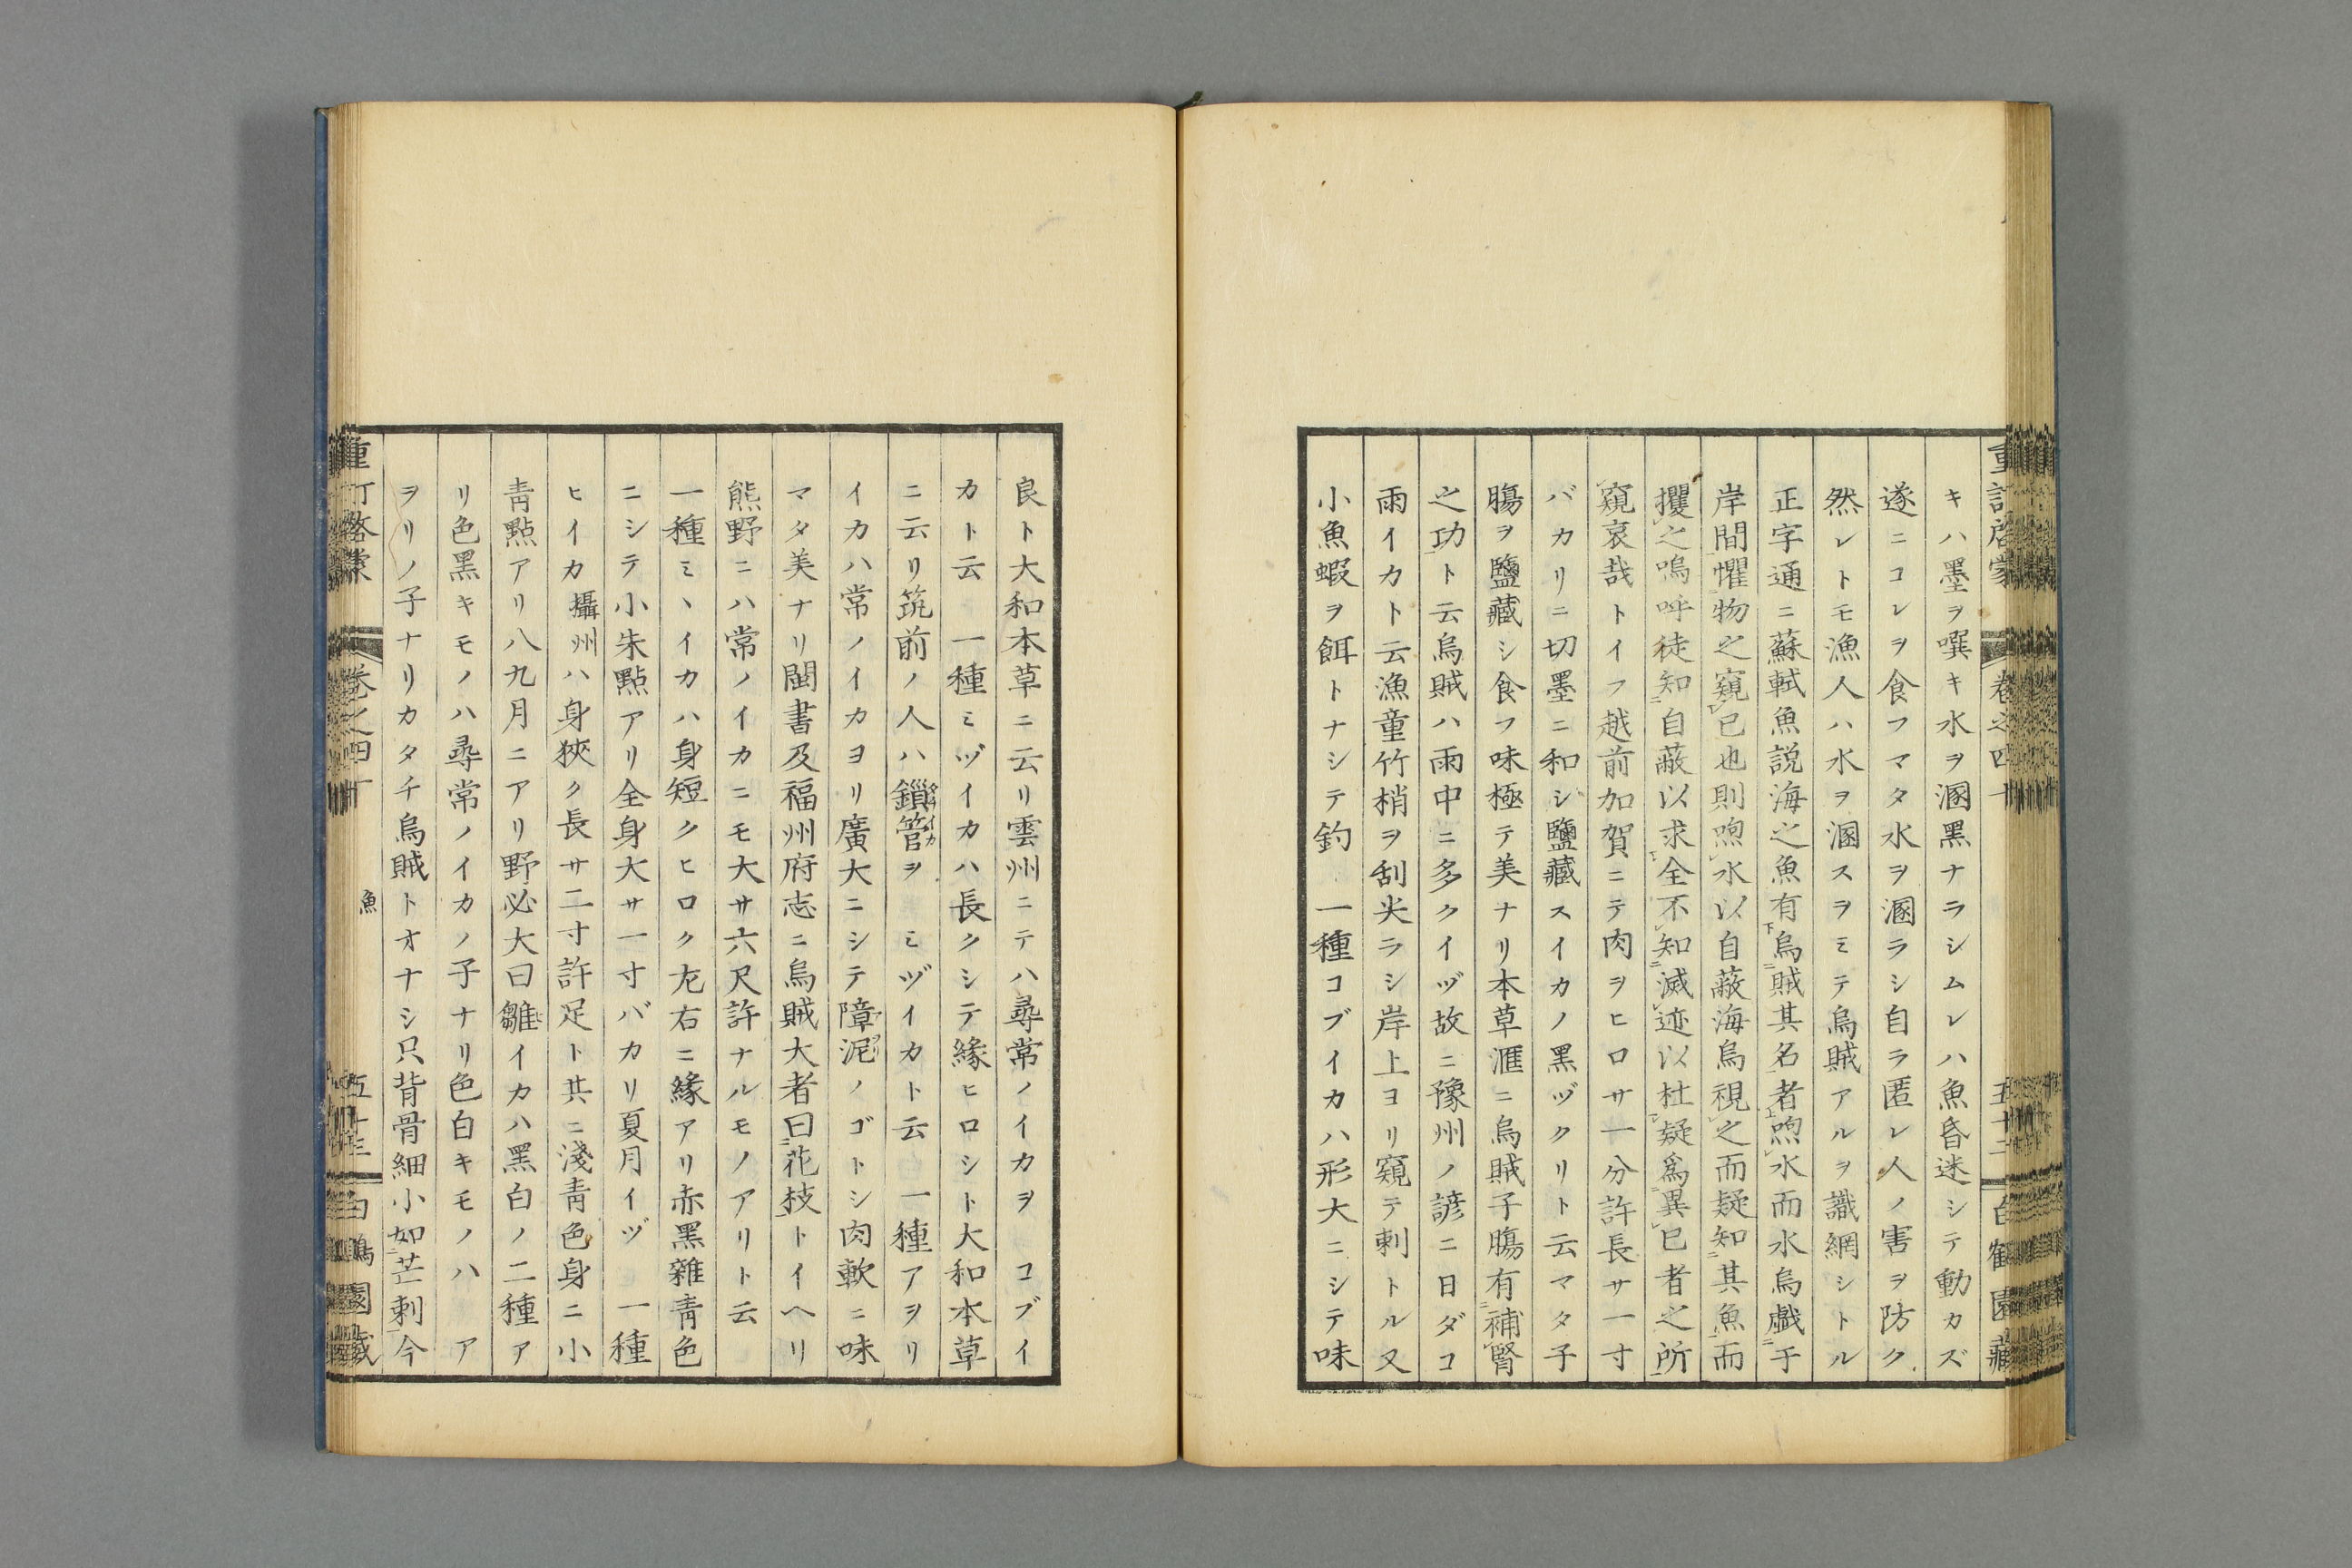 キハ墨ヲ噀キ水ヲ溷黒ナラシムレハ魚昏迷シテ動カズ
遂ニコレヲ食フマタ水ヲ溷ラシ自ラ匿レ人ノ害ヲ防ク
然レトモ漁人ハ水ヲ溷スヲミテ烏賊アルヲ識網シトル
正字通ニ蘇軾魚説海之魚有烏賊其名者呴水而水烏戯于
岸間懼物之窺已也則呴水以自蔽海烏視之而疑知其魚而
攫之嗚呼徒知自蔽以求全不知滅迹以杜疑爲異已者之所
窺哀哉トイフ越前加賀ニテ肉ヲヒロサ一分許長サ一寸
バカリニ切墨ニ和シ鹽藏スイカノ黒ヅクリト云マタ子
膓ヲ鹽藏シ食フ味極テ美ナリ本草滙ニ烏賊子膓有補腎
之功ト云烏賊ハ雨中ニ多クイヅ故ニ豫州ノ諺ニ日ダコ
雨イカト云漁童竹梢ヲ刮尖ラシ岸上ヨリ窺テ刺トル又
小魚蝦ヲ餌トナシテ釣 一種コブイカハ形大ニシテ味
良ト大和本草ニ云リ雲州ニテハ尋常ノイカヲ コブイ
カト云 一種ミヅイカハ長クシテ緣ヒロシト大和本草
ニ云リ筑前ノ人ハ鎻管ヲ ミヅイカト云 一種アヲリ
イカハ常ノイカヨリ廣大ニシテ障泥ノゴトシ肉軟ニ味
マタ美ナリ閩書及福州府志ニ烏賊大者曰花枝トイヘリ
熊野ニハ常ノイカニモ大サ六尺許ナルモノアリト云
一種ミヽイカハ身短クヒロク左右ニ緣アリ赤黒雜靑色
ニシテ小朱點アリ全身大サ一寸バカリ夏月イヅ 一種
ヒイカ攝州ハ身狹ク長サ二寸許足ト共ニ淺靑色身ニ小
靑點アリ八九月ニアリ野必大曰雛イカハ黒白ノ二種ア
リ色黒キモノハ尋常ノイカノ子ナリ色白キモノハ ア
ヲリノ子ナリカタチ烏賊トオナシ只背骨細小如芒刺今
魚